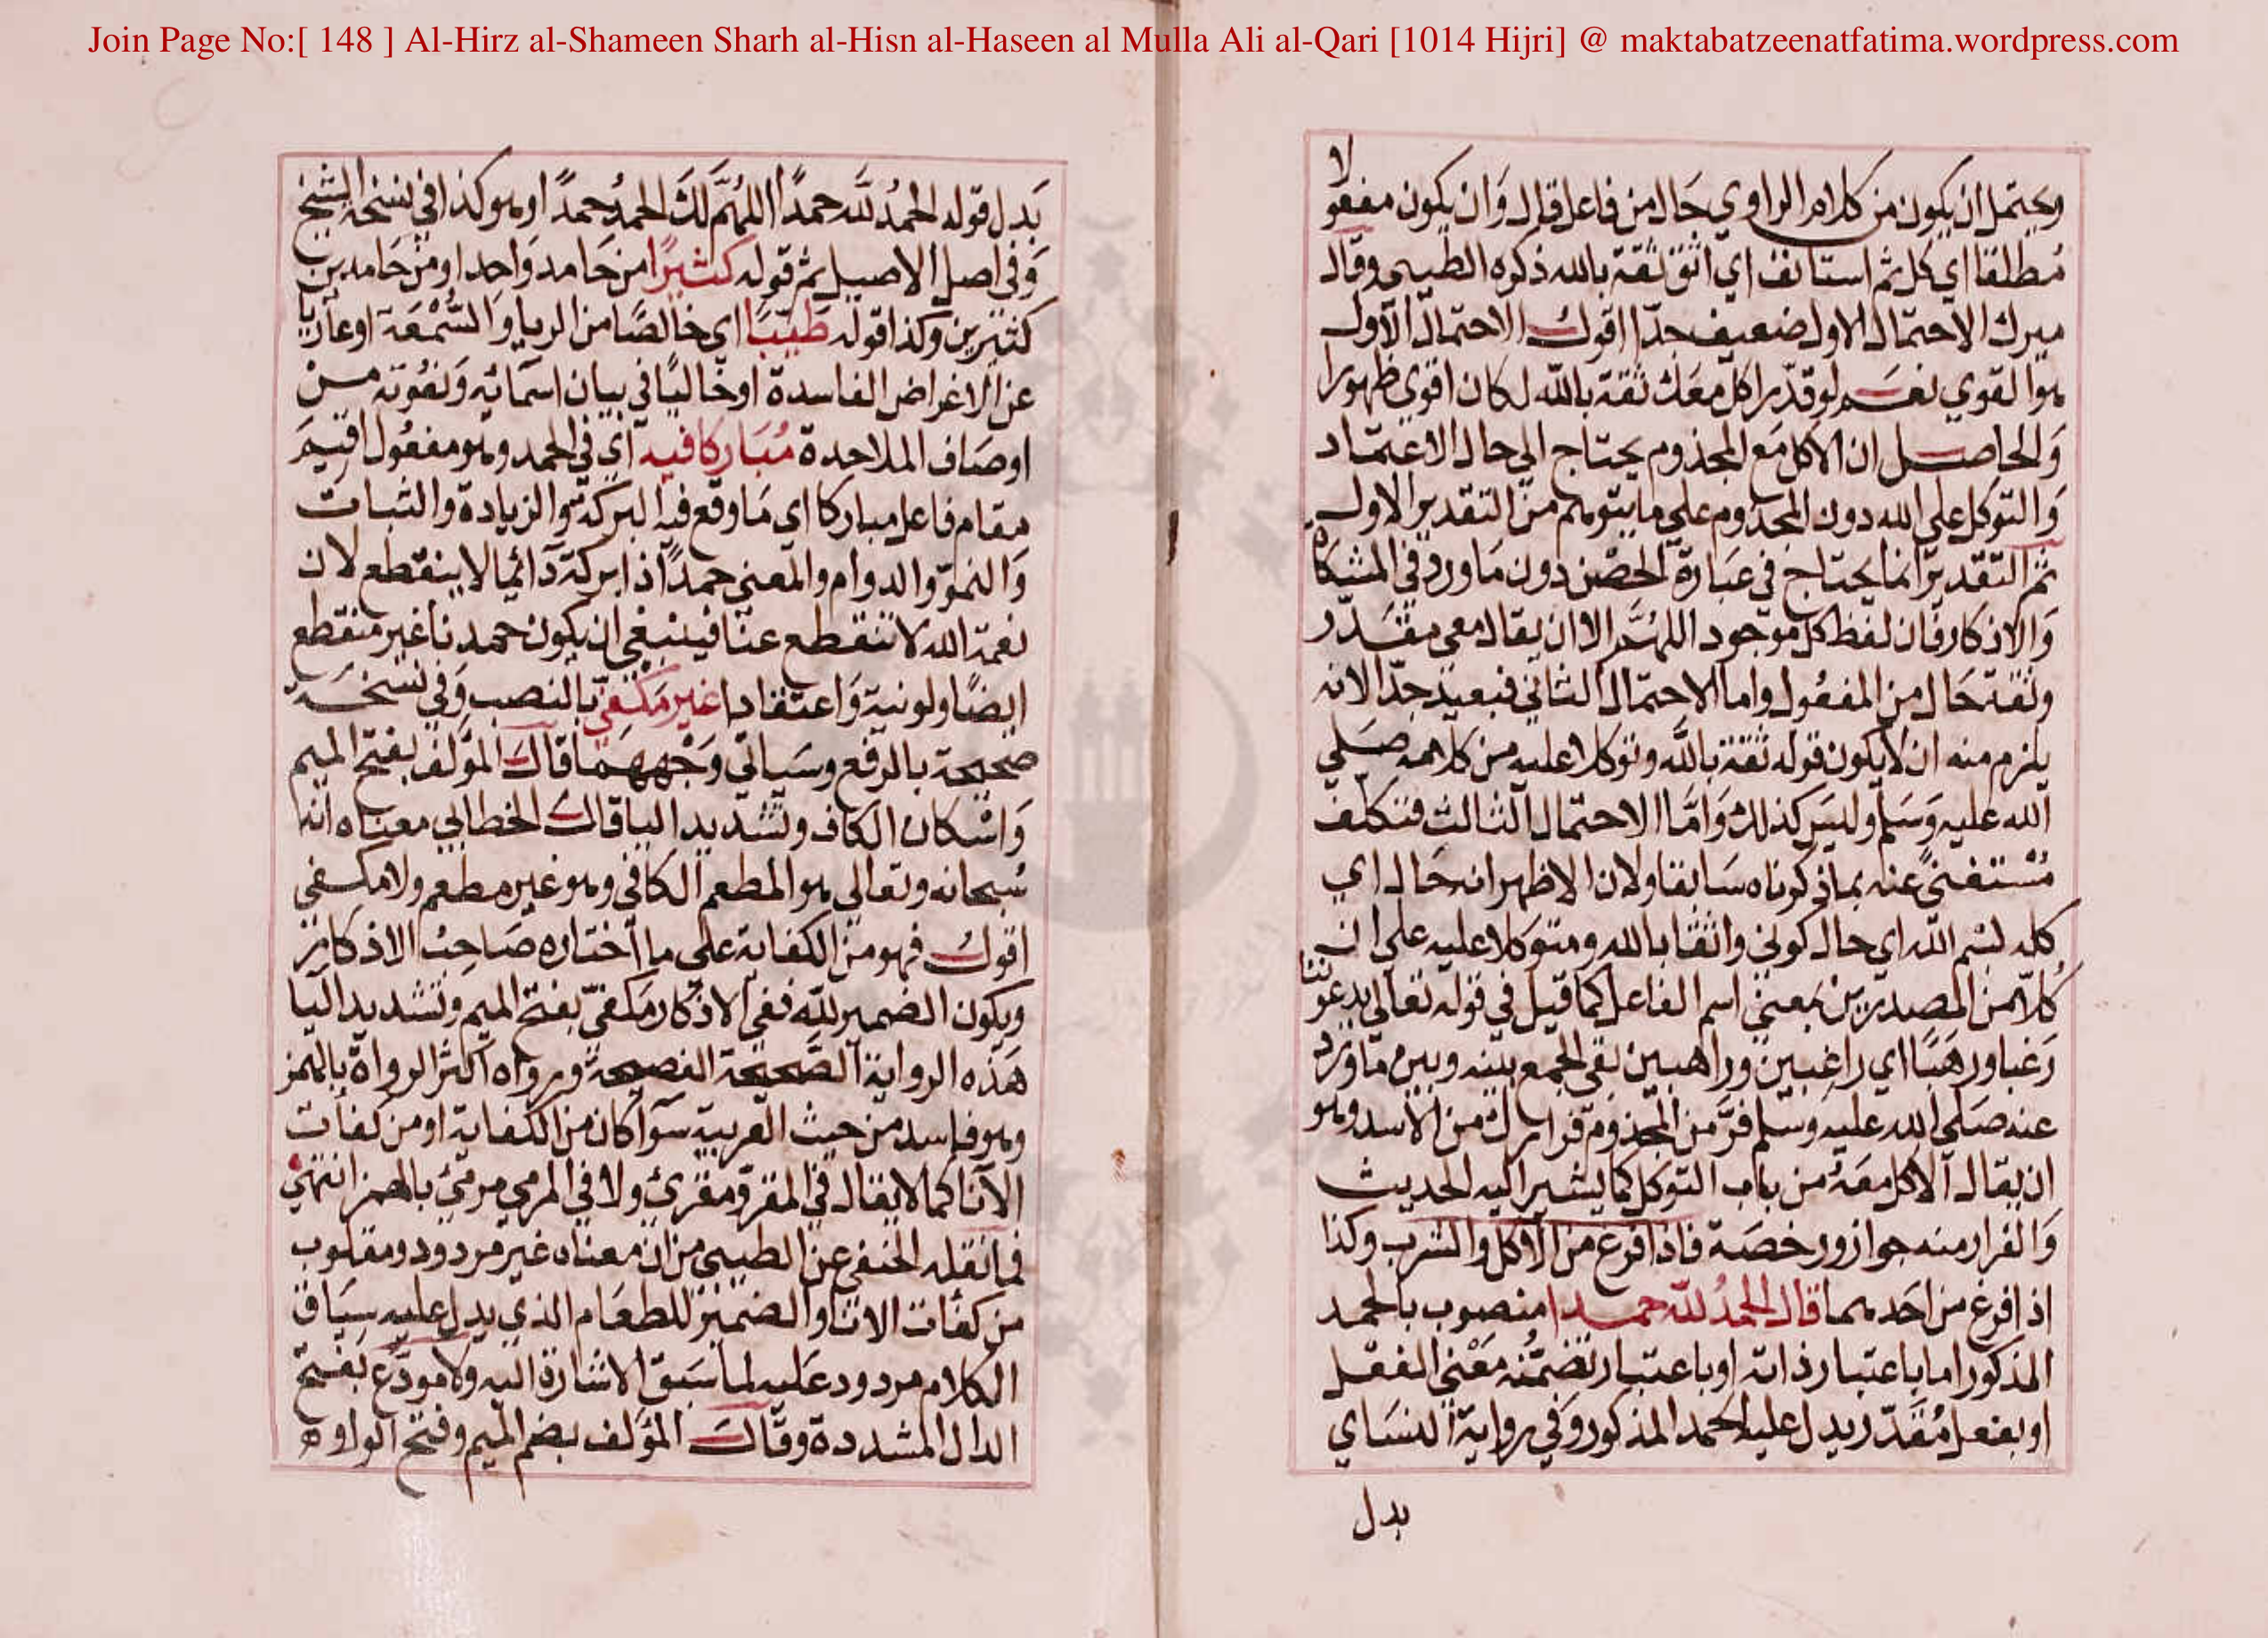 Join Page No:[ 148 ] Al-Hirz al-Shameen Sharh al-Hisn al-Haseen al Mulla Ali al-Qari [1014 Hijri] @ maktabatzeenatfatima.wordpress.com
ويحتمل ان يكون من كلام الراوي حَال من فاعل قال وَان يكون مفعولا
مُطلقا اي كل ثم استانف اي اثق ثقة بالله ذكره الطيبي وقال
ميرك الاحتمال الاول ضعيف جدّا اقول الاحتمال الاول
هو القوي نعم لو قدّر اكل معك ثقة بالله لكان اقوي ظهورا
وَالحاصل ان الاكل مَع المجذوم يحتاج الي حال الاعتماد
وَالتوكل علي الله دون المجذوم علي ما يتوهم من التقدير الاول
ثم التقدير انما يحتاج في عبَارة الحصْن دون مَا ورد في المشكاة
وَالاذكار فان لفظ كل موجود اللهُمَّ الا ان يقال معي مقَدّر
وثقة حَال من المفعُول واما الاحتمال الثاني فبعيد جدّا لانه
يلزم منه ان لا يكون قوله ثقة باللَّه وتوكلا عليه من كلامه صَلي
الله عليه وَسَلم وليسَ كذلك وَامَّا الاحتمال الثالث فتكلف
مُسْتغنيً عنه بما ذكرناه سَابقا ولان الاظهر انه حَال اي
كله بسْم اللّه اي حال كوني واثقا بالله ومتوكلا عليه علي ان
كلاّ من المصدرين بمَعني اسم الفاعل كما قيل في قوله تعالي يدعوننا
رَغبا ورهَبًا اي راغِبين وراهبين بقي الجمع بينه وبين مَا ورد
عنه صَلي الله عليه وسَلم فرَّ من المجذوم فرارك من الاسد وهو
ان يقال الاكل معَهُ من باب التوكل كما يشير اليه الحديث
وَالفرار منه جواز ورخصَة فاذا فرغ من الاكل والشرب وكذا
اذا فرغ من احَدهما قال الحمدُ للّه حمدا منصوب بالحمد
المذكور اما باعتبار ذاته او باعتبار تضمُّنه مَعْني الفعل
او بفعل مُقَدّر يدل عليه الحمد المذكور وَفي رواية النسَاي
بدل
بَدل قوله الحمدُ للّه حمدًا اللهُمَّ لكَ الحمدُ حمدًا وهو كذا في نسخة الشيخ
وَفي اصل الاصيل ثم قوله كثيرًا من حَامد وَاحد او من حَامدين
كثيرين وكذا قوله طَيّبًا اي خالصًا من الريا وَالسُّمْعَة او عاريا
عن الاغراض الفاسدة او خاليًا في بيان اسمَائه وَنعُوته من
اوصَاف الملاحدة مُبَاركا فيه اي في الحمد وهو مفعُول اقيمَ
مقام فاعل مباركا اي مَا وقع فيه البركة هو الزيادة والثبات
وَالنموّ والدوام والمعني حمدًا ذا بركة دَائما لا ينقطع لان
نعمة الله لا تنقطع عنا فينبغي ان يكون حمدنا غير منقطع
ايضًا ولو نية وَاعتقادا غير مَكْفيّ بالنصب وَفي نسخَة
صحيحة بالرفع وسَياتي وَجْههما قال المؤلف بفتح الميم
وَاسْكان الكاف وتشديد اليا قال الخطابي معنَاه انه
سُبحانه وتعالي هو المطعم الكافي وهو غير مطعم ولا مكفي
اقول فهو من الكفاية علي ما اختاره صَاحِبُ الاذكار
ويكون الضمير للّه ففي الاذكار مَكفيّ بفتح الميم وتشديد اليا
هَذه الرواية الصَّحيحة الفصيحة ورواه اكثر الرواة بالهمز
وهو فاسد من حيث العربية سَوا كان من الكفاية او من كفات
الانا كما لا يقال في المقروّ مقرئ ولا في المرمي مرمئ بالهمز انتهي
فما نقله الحنفي عن الطيبي من ان معناه غير مردود ومقلوب
من كفات الانا والضمير للطعَام الذي يدل عليه سِيَاق
الكلام مردود عَليه لما سَبق الاشارة اليه ولا مودَّع بفتح
الدال المشددة وقال المؤلف بضم الميم وفتح الواو